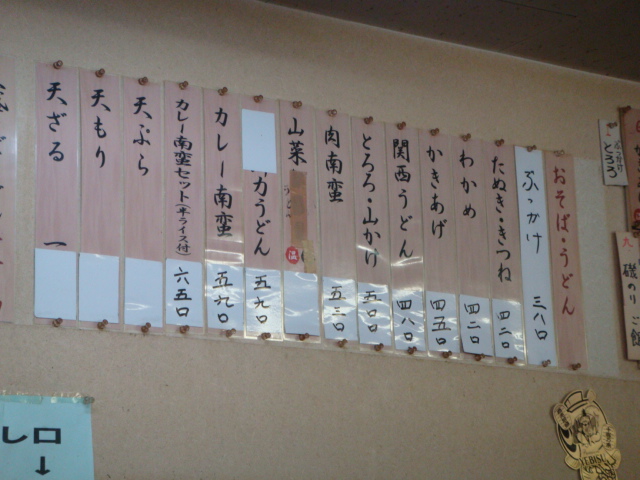 おそば・うどん
ぶっかけ 三八〇
たぬき・きつね 四二〇
わかめ 四二〇
かきあげ 四五〇
関西うどん 四八〇
とろろ・山かけ 五〇〇
肉南蛮 五三〇
山菜 うどん 温
力うどん 五九〇
カレー南蛮 五九〇
カレー南蛮セット(半ライス付) 六五〇
天ぷら
天もり
天ざる 一
とろろ
磯のり
し口
↓